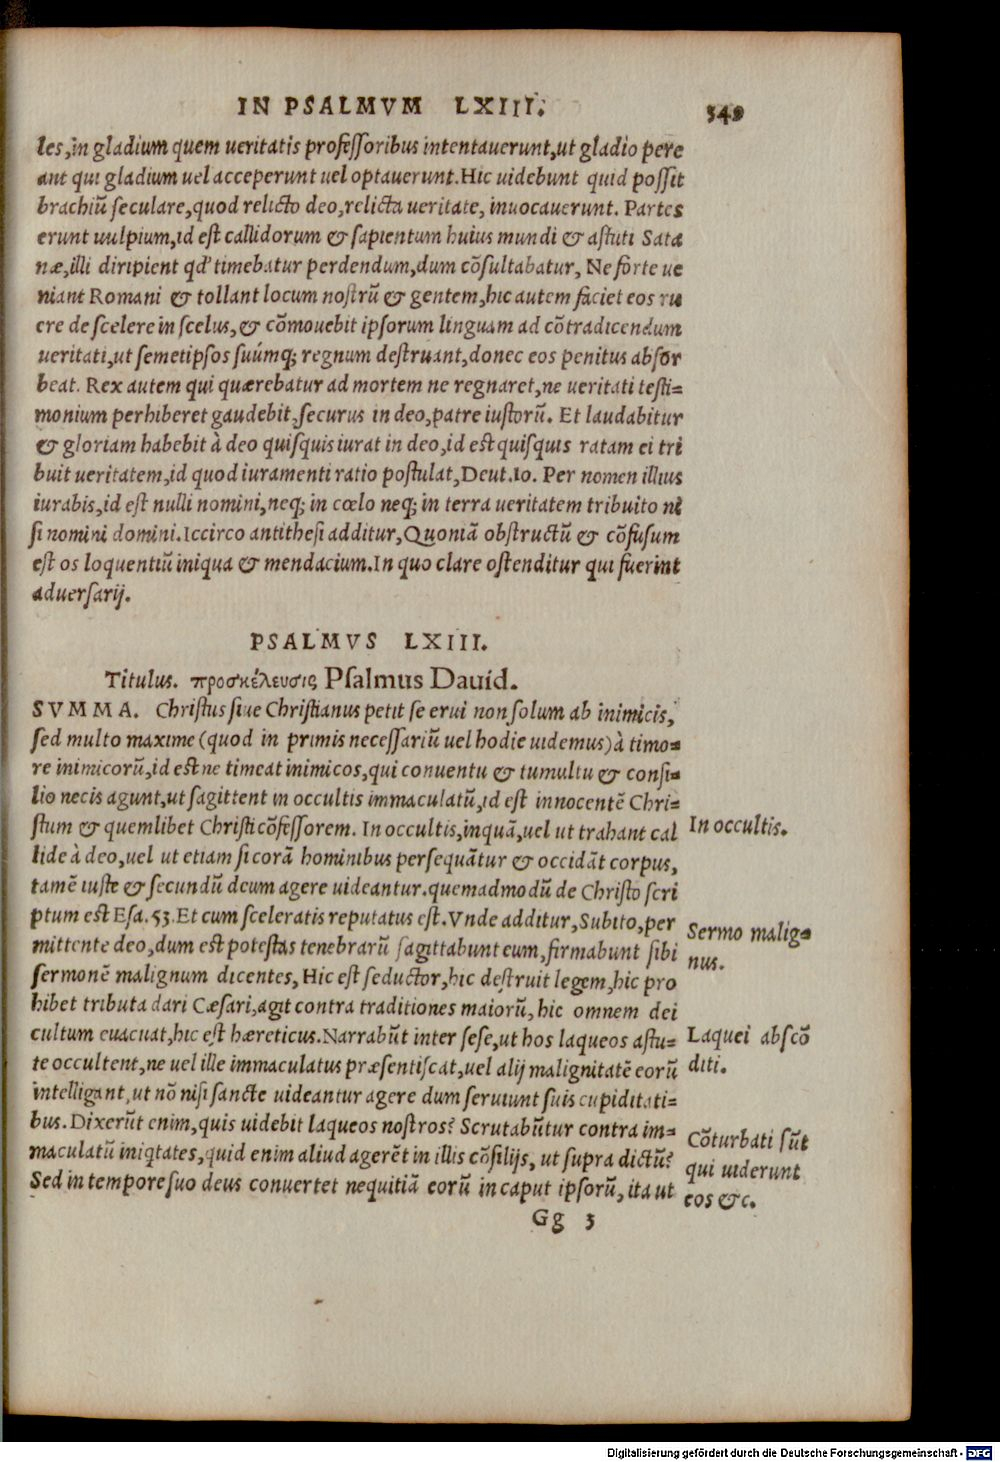 IN PSALMVM LXIII.
349
les, in gladium quem ueritatis professoribus intentauerunt, ut gladio pere
ant qui gladium uel acceperunt uel optauerunt. Hic uidebunt quid possit
brachiũ seculare, quod relicto deo, relicta ueritate, inuocauerunt. Partes
erunt uulpium, id est callidorum & sapientum huius mundi & astuti Sata
næ, illi diripient qd' timebatur perdendum, dum cõsultabatur, Ne forte ue
niant Romani & tollant locum nostrũ & gentem, hic autem faciet eos ru
ere de scelere in scelus, & cõmouebit ipsorum linguam ad cõtradicendum
ueritati, ut semetipsos suúmq; regnum destruant, donec eos penitus absor
beat. Rex autem qui quærebatur ad mortem ne regnaret, ne ueritati testi=
monium perhiberet gaudebit, securus in deo, patre iustorũ. Et laudabitur
& gloriam habebit à deo quisquis iurat in deo, id est quisquis ratam ei tri
buit ueritatem, id quod iuramenti ratio postulat, Deut. 10. Per nomen illius
iurabis, id est nulli nomini, neq; in cœlo neq; in terra ueritatem tribuito ni
si nomini domini. Iccirco antithesi additur, Quoniã obstructũ & cõfusum
est os loquentiũ iniqua & mendacium. In quo clare ostenditur qui fuerint
aduersarij.
PSALMVS LXIII.
Titulus. προσκέλευσις Psalmus Dauid.
SVMMA. Christus siue Christianus petit se erui non solum ab inimicis,
sed multo maxime (quod in primis necessariũ uel hodie uidemus) à timo=
re inimicorũ, id est ne timeat inimicos, qui conuentu & tumultu & consi=
lio necis agunt, ut sagittent in occultis immaculatũ, id est innocentẽ Chri=
stum & quemlibet Christi cõfessorem. In occultis, inquã, uel ut trahant cal
In occultis.
lide à deo, uel ut etiam si corã hominibus persequãtur & occidãt corpus,
tamẽ iuste & secundũ deum agere uideantur. quemadmodũ de Christo scri
ptum est Esa. 53. Et cum sceleratis reputatus est. Vnde additur, Subito, per
Sermo malig=
mittente deo, dum est potestas tenebrarũ sagittabunt eum, firmabunt sibi
nus.
sermonẽ malignum dicentes, Hic est seductor, hic destruit legem, hic pro
hibet tributa dari Cæsari, agit contra traditiones maiorũ, hic omnem dei
cultum euacuat, hic est hæreticus. Narrabũt inter sese, ut hos laqueos astu=
Laquei abscõ
te occultent, ne uel ille immaculatus præsentiscat, uel alij malignitatẽ eorũ
diti.
intelligant, ut nõ nisi sancte uideantur agere dum seruiunt suis cupiditati=
bus. Dixerũt enim, quis uidebit laqueos nostros? Scrutabũtur contra im=
Cõturbati sũt
maculatũ iniqtates, quid enim aliud agerẽt in illis cõsilijs, ut supra dictũ?
qui uiderunt
Sed in tempore suo deus conuertet nequitiã eorũ in caput ipsorũ, ita ut
eos &c.
Gg 3
Digitalisierung gefördert durch die Deutsche Forschungsgemeinschaft - DFG